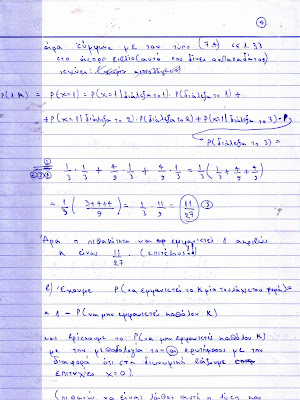 ④
άρα σύμφωνα με τον τύπο (7.4) σελ 33
στο άσπρο βιβλίο (αυτό που δίνει απλαταδιότητας)
ισχύει:
P(1 K) = P(x=1) = P(x=1|διάλεξα το 1)·P(διάλεξα το 1) +
+P(x=1|διάλεξα το 2)·P(διάλεξα το 2)+P(x=1|διάλεξα το 3)·P
P(διάλεξα το 3) =
①
②③④ = 1/3 · 1/3 + 4/9 · 1/3 + 4/9 · 1/3 = 1/3 (1/3 + 4/9 + 4/9)
= 1/3 (3+4+4/9) = 1/3 · 11/9 = 11/27 ⑤
Άρα η πιθανότητα να εμφανιστεί 1 ακριβώς
K είναι 11/27. (επιτέλους!!)
β) Έχουμε P(να εμφανιστεί το K μία τουλάχιστον φορά)=
= 1 - P(να μην εμφανιστεί καθόλου K)
και βρίσκουμε το P(να μην εμφανιστεί καθόλου K)
με την μεθοδολογία του (α) ερωτήματος με την
διαφορά ότι στη διωνυμική βάζουμε
επιτυχίες x=0).
(πιθανόν να είναι λάθος αυτή η λύση και